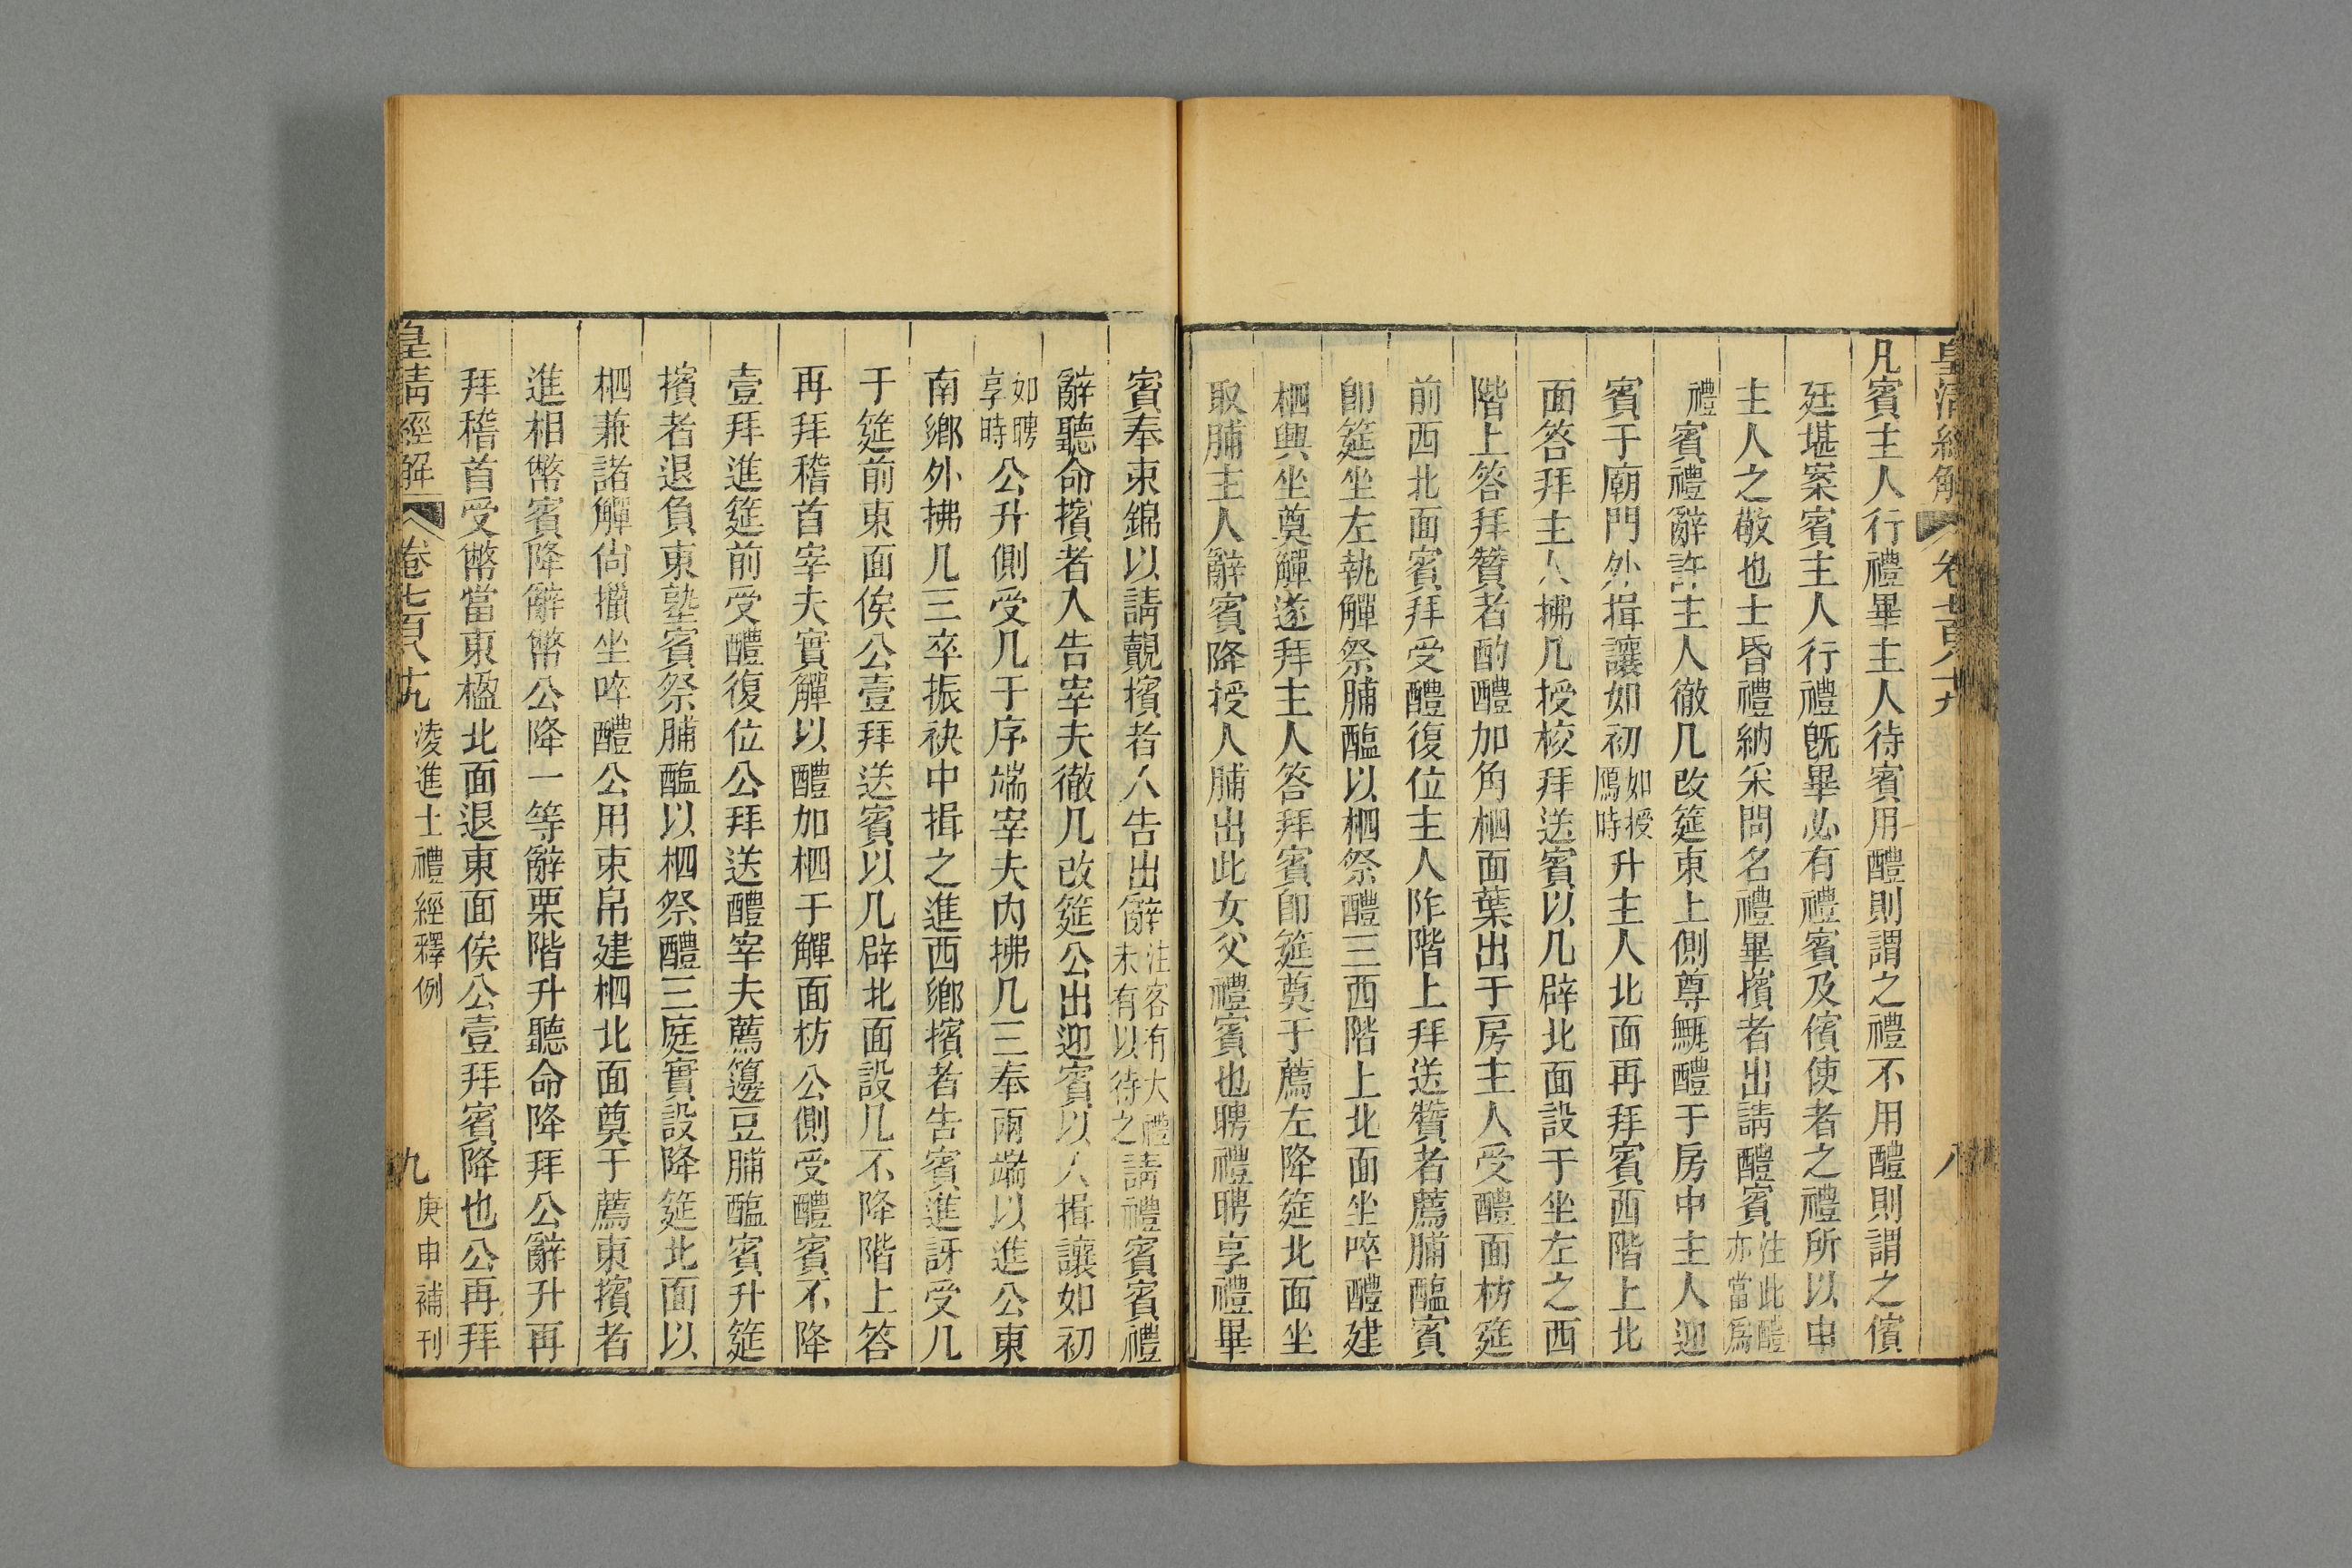 皇清經解 卷七百八十九 八
凡賓主人行禮畢主人待賓用醴則謂之禮不用醴則謂之儐
廷堪案賓主人行禮既畢必有禮賓及儐使者之禮所以申
主人之敬也士昏禮納采問名禮畢擯者出請醴賓注此醴亦當爲
禮賓禮辭許主人徹几改筵東上側尊甒醴于房中主人迎
賓于廟門外揖讓如初如授鴈時升主人北面再拜賓西階上北
面答拜主人拂几授校拜送賓以几辟北面設于坐左之西
階上答拜贊者酌醴加角柶面葉出于房主人受醴面枋筵
前西北面賓拜受醴復位主人阼階上拜送贊者薦脯醢賓
卽筵坐左執觶祭脯醢以柶祭醴三西階上北面坐啐醴建
柶興坐奠觶遂拜主人答拜賓卽筵奠于薦左降筵北面坐
取脯主人辭賓降授人脯出此女父禮賓也聘禮聘享禮畢
賓奉束錦以請覿擯者入告出辭注客有大禮未有以待之請禮賓賓禮
辭聽命擯者入告宰夫徹几改筵公出迎賓以入揖讓如初
如聘享時公升側受几于序端宰夫內拂几三奉兩端以進公東
南鄉外拂几三卒振袂中揖之進西鄉擯者告賓進訝受几
于筵前東面俟公壹拜送賓以几辟北面設几不降階上答
再拜稽首宰夫實觶以醴加柶于觶面枋公側受醴賓不降
壹拜進筵前受醴復位公拜送醴宰夫薦籩豆脯醢賓升筵
擯者退負東塾賓祭脯醢以柶祭醴三庭實設降筵北面以
柶兼諸觶尙擸坐啐醴公用束帛建柶北面奠于薦東擯者
進相幣賓降辭幣公降一等辭栗階升聽命降拜公辭升再
拜稽首受幣當東楹北面退東面俟公壹拜賓降也公再拜
皇清經解 卷七百八十九 淩進士禮經釋例 九 庚申補刊